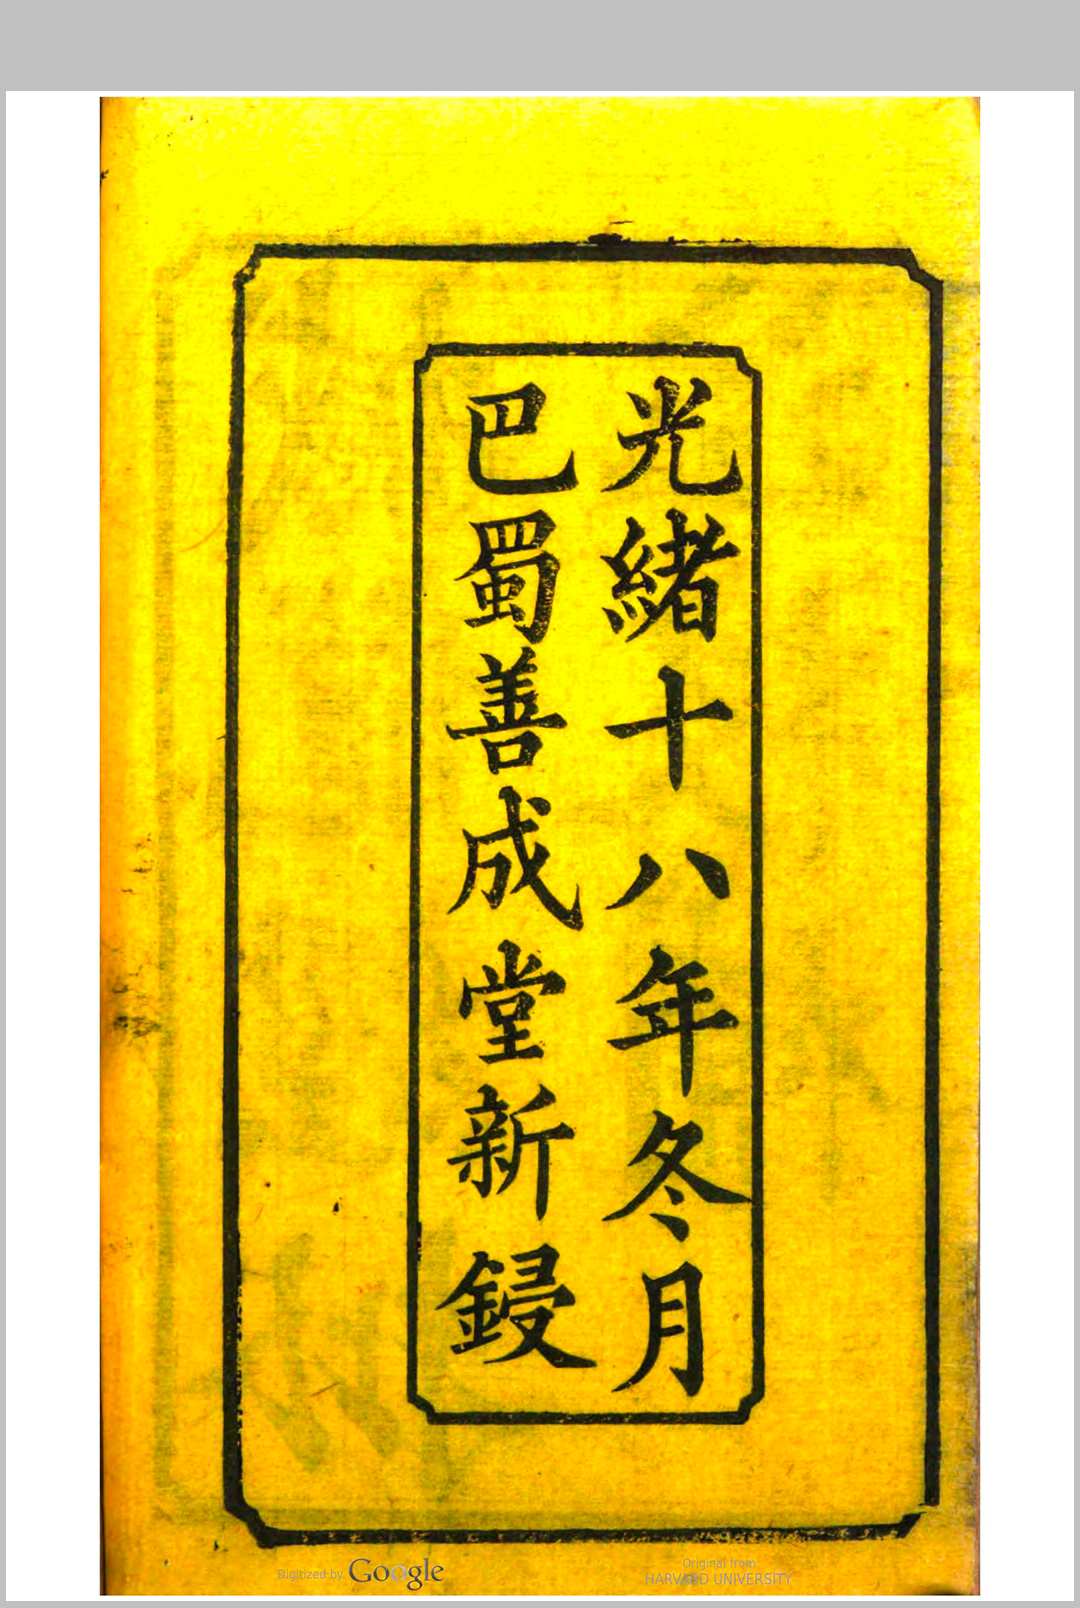 光緒十八年冬月
巴蜀善成堂新鋟
Digitized by Google
Original from
HARVARD UNIVERSITY